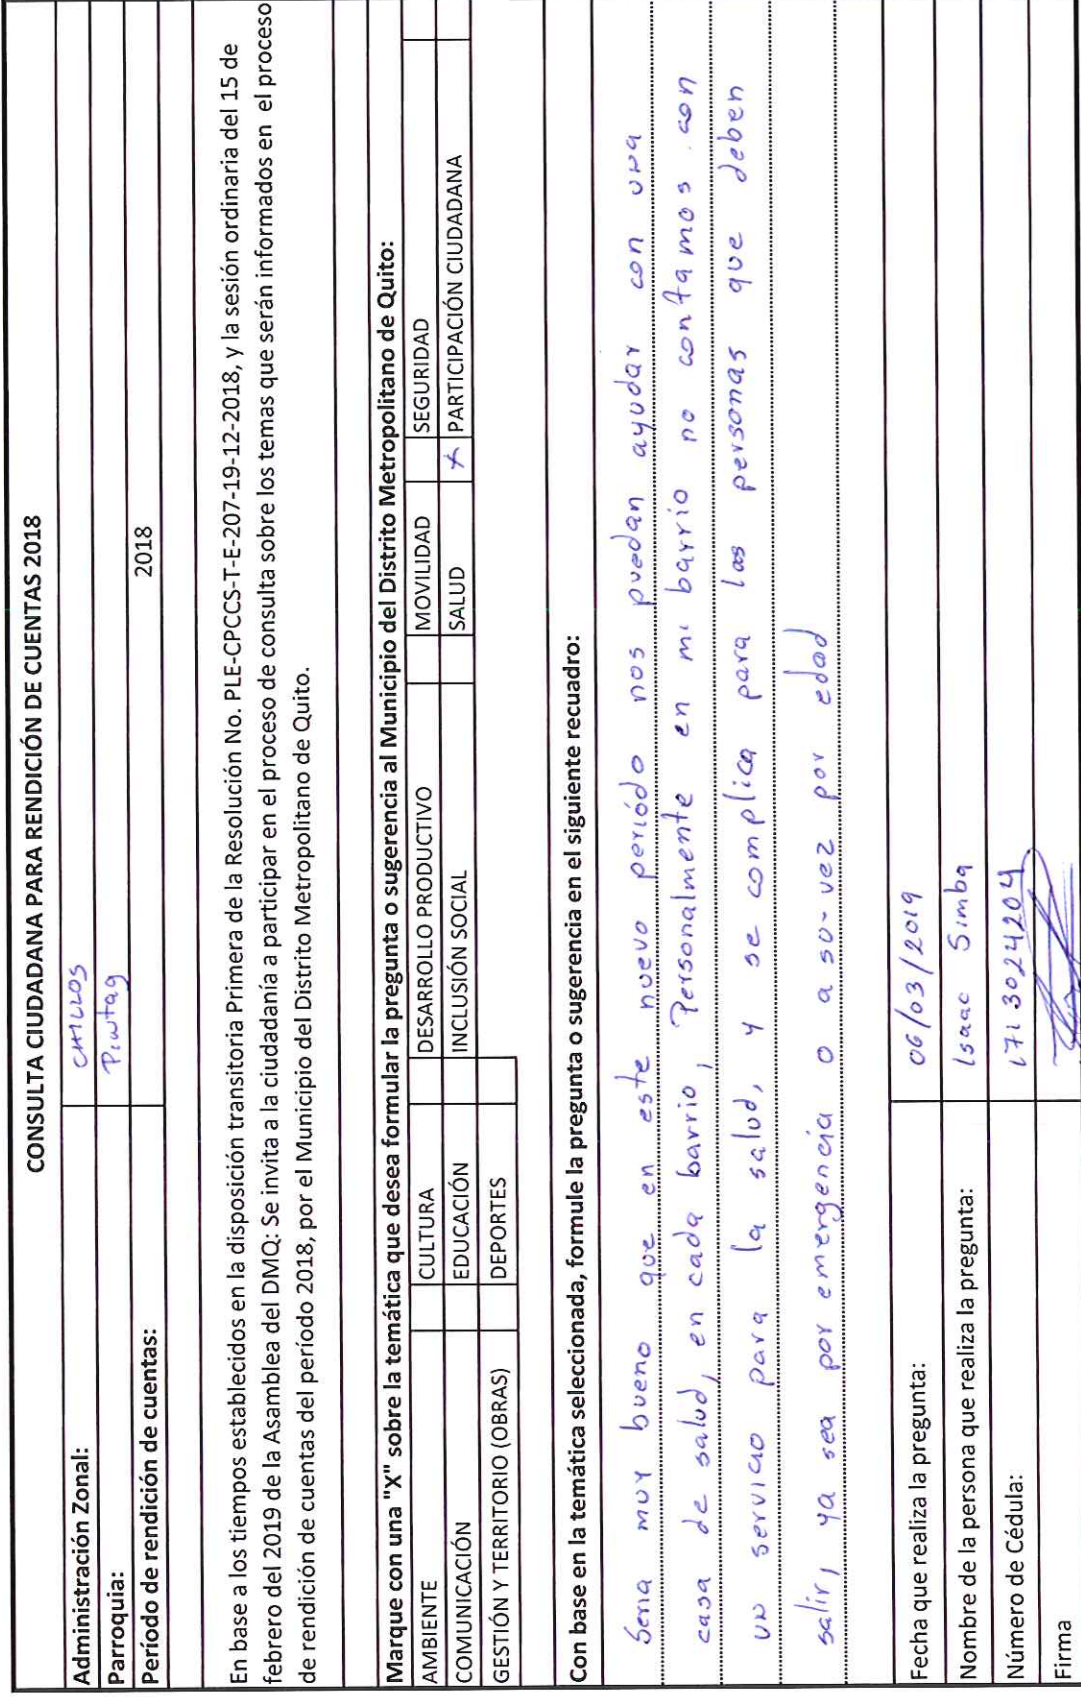 CONSULTA CIUDADANA PARA RENDICIÓN DE CUENTAS 2018
Administración Zonal: CHILLOS
Parroquia: Pintag
Período de rendición de cuentas: 2018
En base a los tiempos establecidos en la disposición transitoria Primera de la Resolución No. PLE-CPCCS-T-E-207-19-12-2018, y la sesión ordinaria del 15 de
febrero del 2019 de la Asamblea del DMQ: Se invita a la ciudadanía a participar en el proceso de consulta sobre los temas que serán informados en el proceso
de rendición de cuentas del período 2018, por el Municipio del Distrito Metropolitano de Quito.
Marque con una "X" sobre la temática que desea formular la pregunta o sugerencia al Municipio del Distrito Metropolitano de Quito:
AMBIENTE CULTURA DESARROLLO PRODUCTIVO MOVILIDAD SEGURIDAD
COMUNICACIÓN EDUCACIÓN INCLUSIÓN SOCIAL SALUD X PARTICIPACIÓN CIUDADANA
GESTIÓN Y TERRITORIO (OBRAS) DEPORTES
Con base en la temática seleccionada, formule la pregunta o sugerencia en el siguiente recuadro:
Seria muy bueno que en este nuevo período nos puedan ayudar con una
casa de salud, en cada barrio, Personalmente en mi barrio no contamos con
un servicio para la salud, y se complica para las personas que deben
salir, ya sea por emergencia o a su-vez por edad
Fecha que realiza la pregunta: 06/03/2019
Nombre de la persona que realiza la pregunta: Isaac Simba
Número de Cédula: 1713024204
Firma